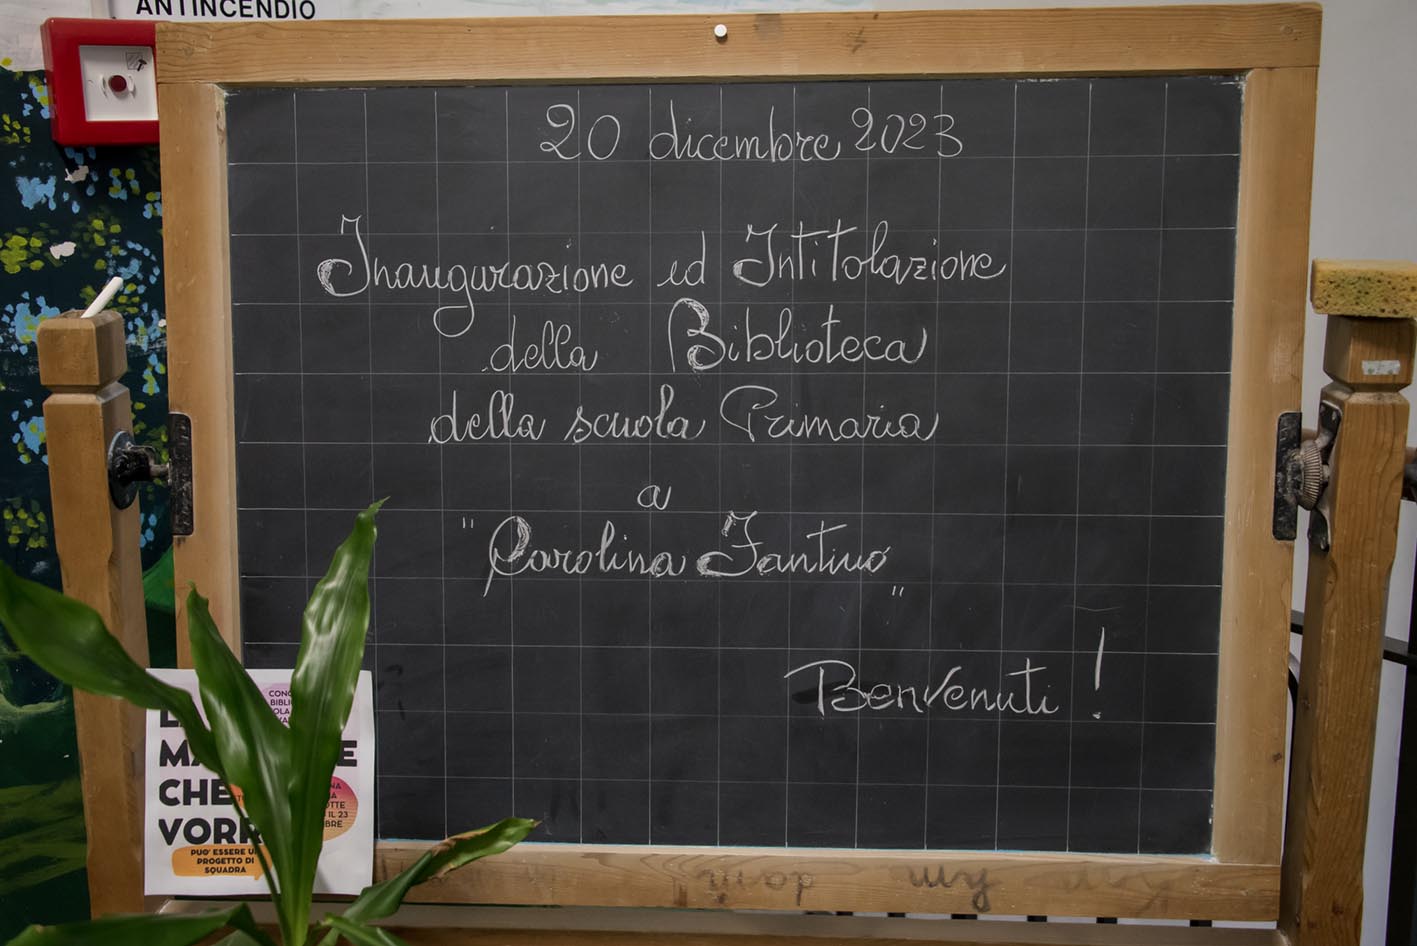 ANTINCENDIO
20 dicembre 2023
Inaugurazione ed Intitolazione
della Biblioteca
della scuola Primaria
a
"Carolina Fantino"
Benvenuti!
CHE
VORR
PUO' ESSERE UN
PROGETTO DI
SQUADRA
IL 23